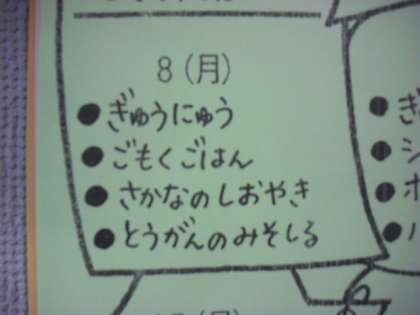 8(月)
●ぎゅうにゅう
●ごもくごはん
●さかなのしおやき
●とうがんのみそしる